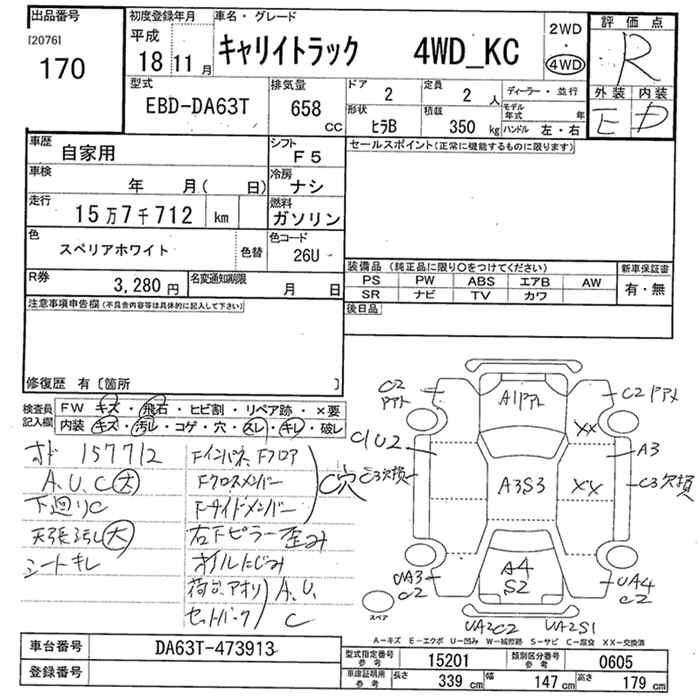 出品番号
[2076]
170
初度登録年月
平成
18 11 月
車名・グレード
キャリイトラック 4WD_KC
2WD
・
4WD
評価点
R
外装 内装
E D
型式
EBD-DA63T
排気量
658 CC
ドア
2
定員
2 人
ディーラー・並行
形状
ヒラB
積載
350 kg
モデル年式 年
ハンドル 左・右
車歴
自家用
シフト
F5
車検
年 月( 日)
冷房
ナシ
走行
15万7千712 km
燃料
ガソリン
色
スペリアホワイト
色替
色コード
26U
R券
3,280 円
名変通知期限
月 日
セールスポイント(正常に機能するものに限ります)
装備品 (純正品に限り○をつけてください)
PS PW ABS エアB AW
SR ナビ TV カワ
新車保証書
有・無
後日品
注意事項申告欄(不具合内容等は具体的に記入して下さい)
修復歴 有〔箇所 〕
検査員記入欄
FW キズ・飛石・ヒビ割・リペア跡・×要
内装 キズ・汚レ・コゲ・穴・スレ・キレ・破レ
オド 157712
A.U.C大
下廻りC
天張汚レ大
シートキレ
Fインパネ、Fフロア
Fクロスメンバー
Fサイドメンバー
C穴
右下ピラー歪み
オイルにじみ
荷台、アオリ
セットバック
A.U.
C
C2
A1
C2
XX
C1U2
A3
C3欠損
A3S3
XX
C3欠損
UA3
C2
A4
S2
UA4
C2
スペア
UA2C2
UA2S1
A-キズ E-エクボ U-凹み W-補修跡 S-サビ C-腐食 XX-交換済
車台番号
DA63T-473913
登録番号
型式指定番号
参考
15201
類別区分番号
参考
0605
車庫証明用
参考
長さ
339 cm
幅
147 cm
高さ
179 cm